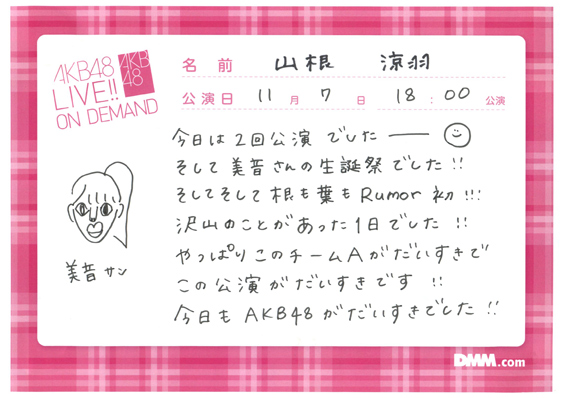 AKB48
LIVE!!
ON DEMAND
AKB
48
名前 山根 涼羽
公演日 11月7日 18:00公演
今日は2回公演でしたー
そして美音さんの生誕祭でした!!
そしてそして根も葉もRumor初!!!
沢山のことがあった1日でした!!
やっぱりこのチームAがだいすきで
この公演がだいすきです!!
今日もAKB48がだいすきでした!!
美音サン
DMM.com